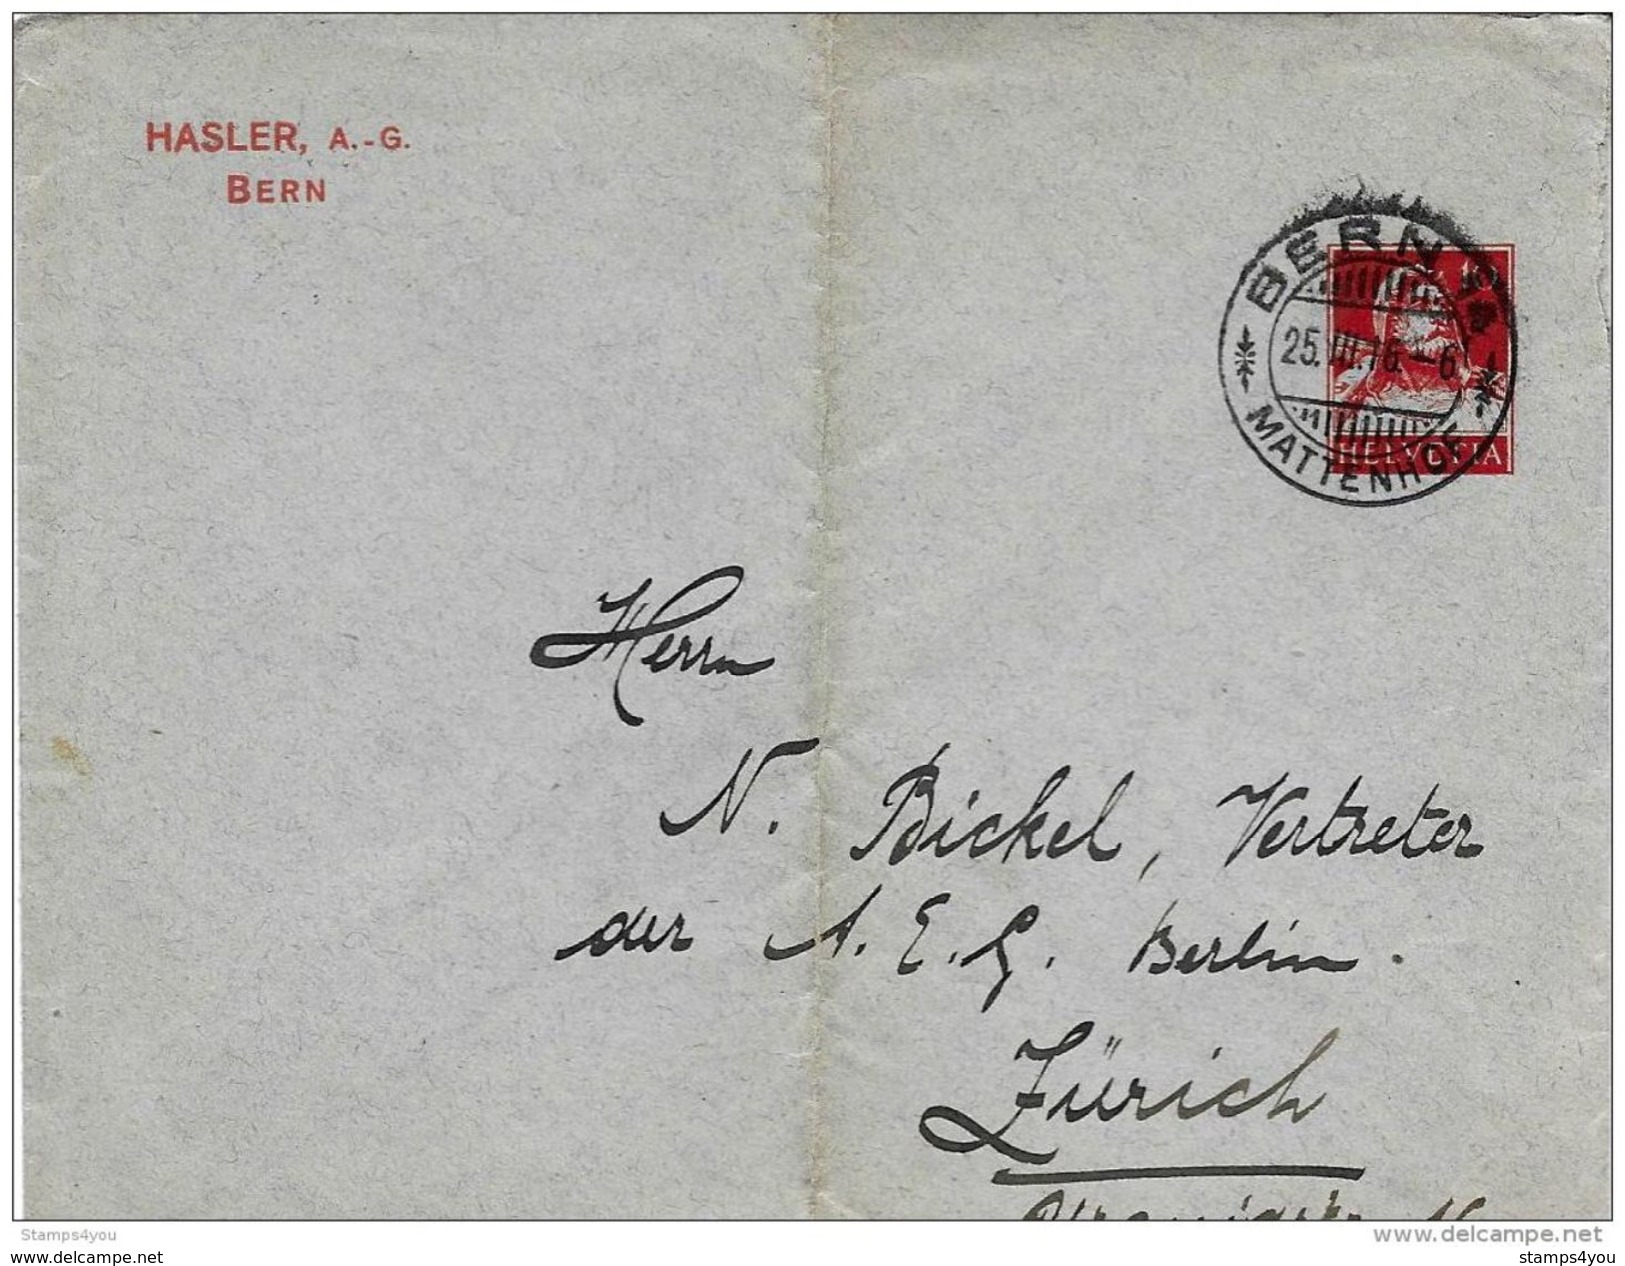 HASLER, A.-G.
BERN
BERN
25.VIII.16.-6
MATTENHOF
HELVETIA
Herrn
N. Bickel, Vertreter
der A.E.G. Berlin.
Zürich
Stamps4you
www.delcampe.net
Stamps4you
stamps4you